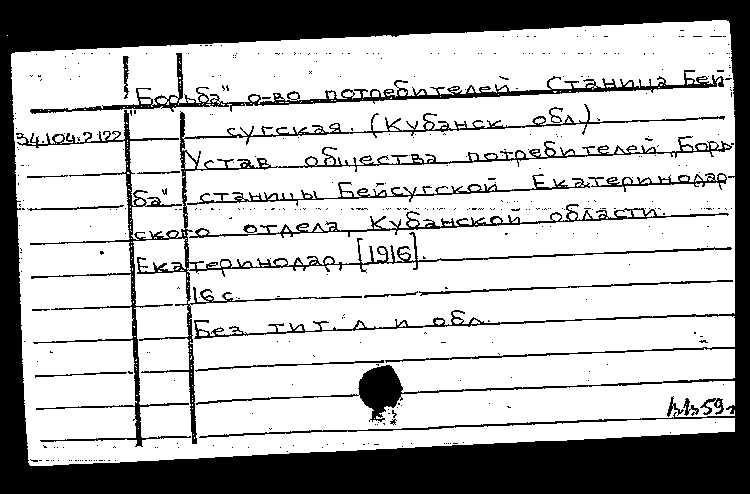 "Борьба", о-во потребителей. Станица Бей-
34.104.2122 сугская. (Кубанск обл.).
Устав общества потребителей „Борь-
ба" станицы Бейсугской Екатеринодар-
ского отдела, Кубанской области.
Екатеринодар, [1916].
16 с.
Без тит. л. и обл.